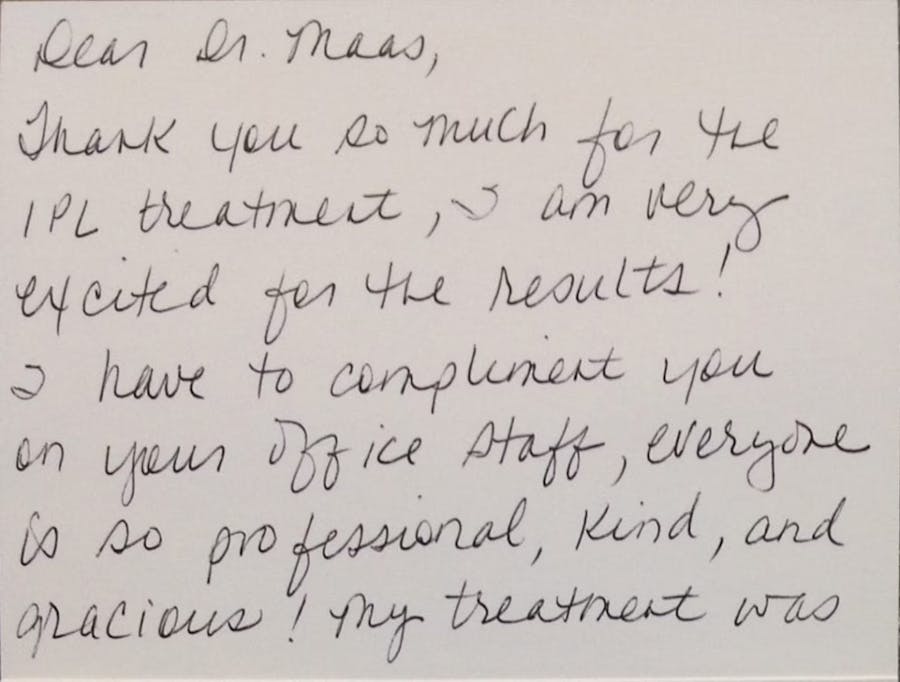 Dear Dr. Maas,
Thank you so much for the
IPL treatment, I am very
excited for the results!
I have to compliment you
on your office staff, everyone
is so professional, kind, and
gracious! My treatment was